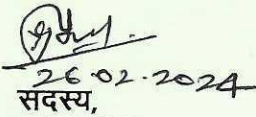 26.02.2024
सदस्य,